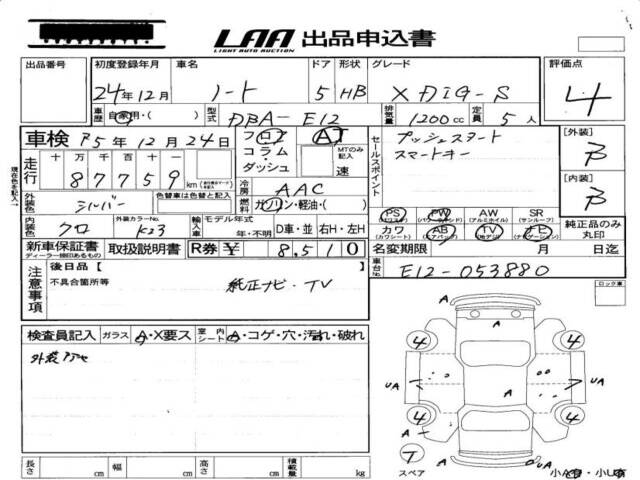 LAA 出品申込書
LIGHT AUTO AUCTION
出品番号 初度登録年月 車名 ドア 形状 グレード 評価点
24年12月 ノート 5 HB X DIG-S 4
車歴 自家用・( ) 型式 DBA-E12 排気量 1200cc 定員 5人
車検 R5年12月24日 フロア AT セールスポイント プッシュスタート [外装]
スマートキー B
走行 十万千百十一 コラム MTのみ記入
87759km ダッシュ 速
外装色 シルバー 色替車は色替えと記入 冷房 AAC [内装]
燃料 ガソリン・軽油・( ) B
内装色 クロ 外装カラーNo. K23 輸入車 モデル年式 年・不明 D車・並 右H・左H
PS PW AW SR
(パワステ) (パワーウインド) (アルミホイル) (サンルーフ)
カワ AB TV ナビ 純正品のみ丸印
(カワシート) (エアバック) (テレビ) (ナビゲーション)
新車保証書 取扱説明書 R券 ¥ 8,510 名変期限 月 日迄
ディーラー捺印あるもの
車台No. E12-053880
現在色を記入→
注意事項 後日品[ ]
不具合箇所等 純正ナビ・TV
ロック車
検査員記入 ガラス A・X要ス 室内シート A・コゲ・穴・汚れ・破れ
外装アセ
A
A
4 4
UA A A UA
A
4 4
A
A
T
スペア
A
小A有・小U有
長さ cm 幅 cm 高さ cm 積載量 kg